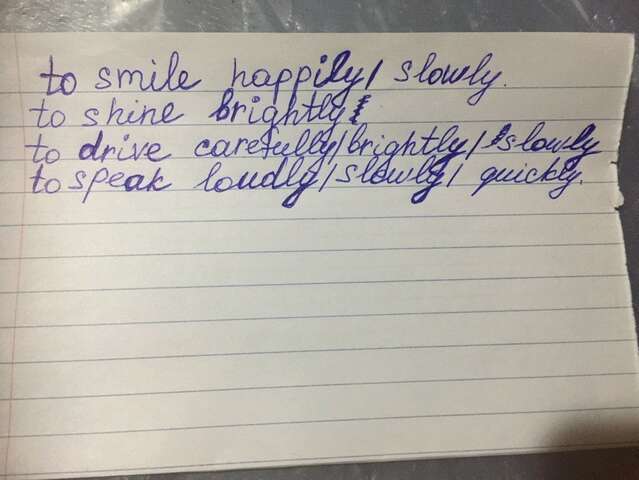 to smile happily/ slowly.
to shine brightly
to drive carefully/brightly/ slowly
to speak loudly/slowly/ quickly.